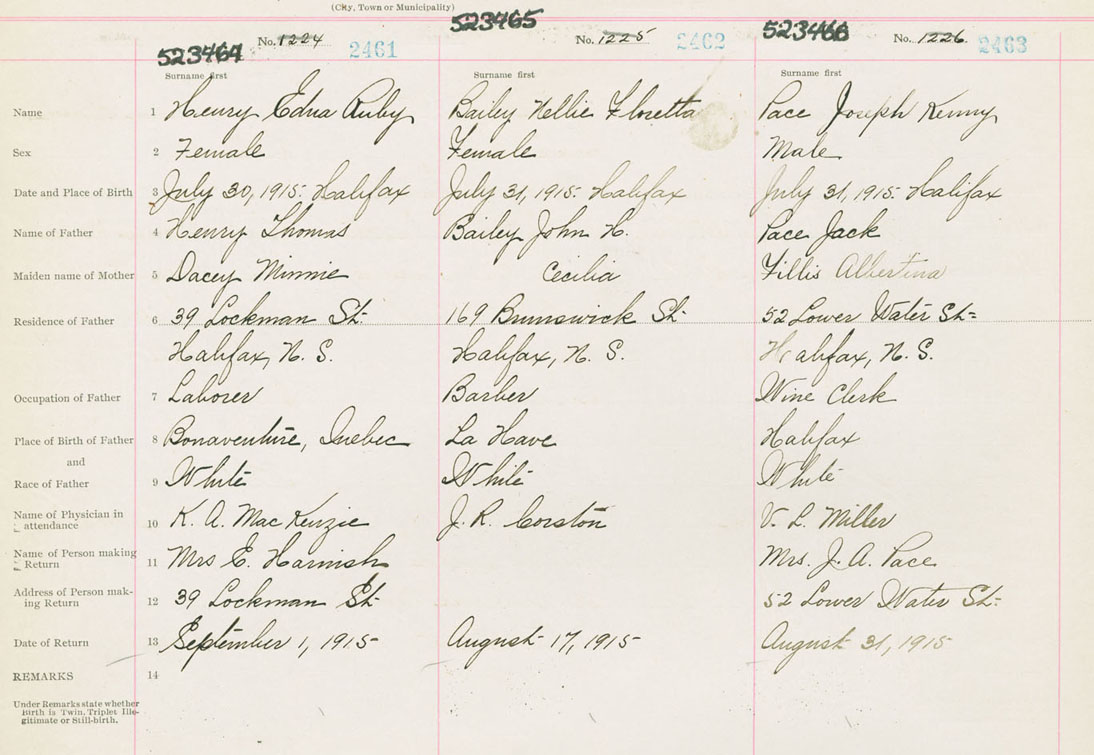 (City, Town or Municipality)
523464 No. 1224 2461 523465 No. 1225 2462 523466 No. 1226 2463
Surname first Surname first Surname first
Name 1 Henry Edna Ruby Bailey Nellie Floretta Pace Joseph Kenny
Sex 2 Female Female Male
Date and Place of Birth 3 July 30, 1915 Halifax July 31, 1915 Halifax July 31, 1915 Halifax
Name of Father 4 Henry Thomas Bailey John H. Pace Jack
Maiden name of Mother 5 Dacey Minnie Cecilia Fillis Albertina
Residence of Father 6 39 Lockman St. 169 Brunswick St. 52 Lower Water St.
Halifax, N. S. Halifax, N. S. Halifax, N. S.
Occupation of Father 7 Laborer Barber Wine Clerk
Place of Birth of Father 8 Bonaventure, Quebec La Have Halifax
and
Race of Father 9 White White White
Name of Physician in
attendance 10 K. A. MacKenzie J. R. Corston V. L. Miller
Name of Person making
Return 11 Mrs E. Harnish Mrs. J. A. Pace
Address of Person mak-
ing Return 12 39 Lockman St. 52 Lower Water St.
Date of Return 13 September 1, 1915 August 17, 1915 August 31, 1915
REMARKS 14
Under Remarks state whether
Birth is Twin, Triplet Ille-
gitimate or Still-birth.